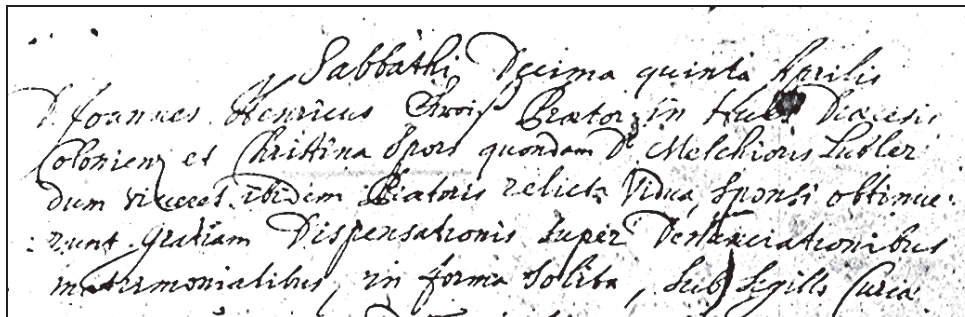 Sabbathi Decima quinta Aprilis
D. Joannes Henricus Prætor in Diœcesis
Colonien et Christina Spors quondam D. Melchioris Lubler
dum viveret ibidem Prætoris relicta Vidua, Sponsi obtinue:
:runt gratiam Dispensationis super Denunciationibus
matrimonialibus, in forma solita, sub Sigillo Curiæ